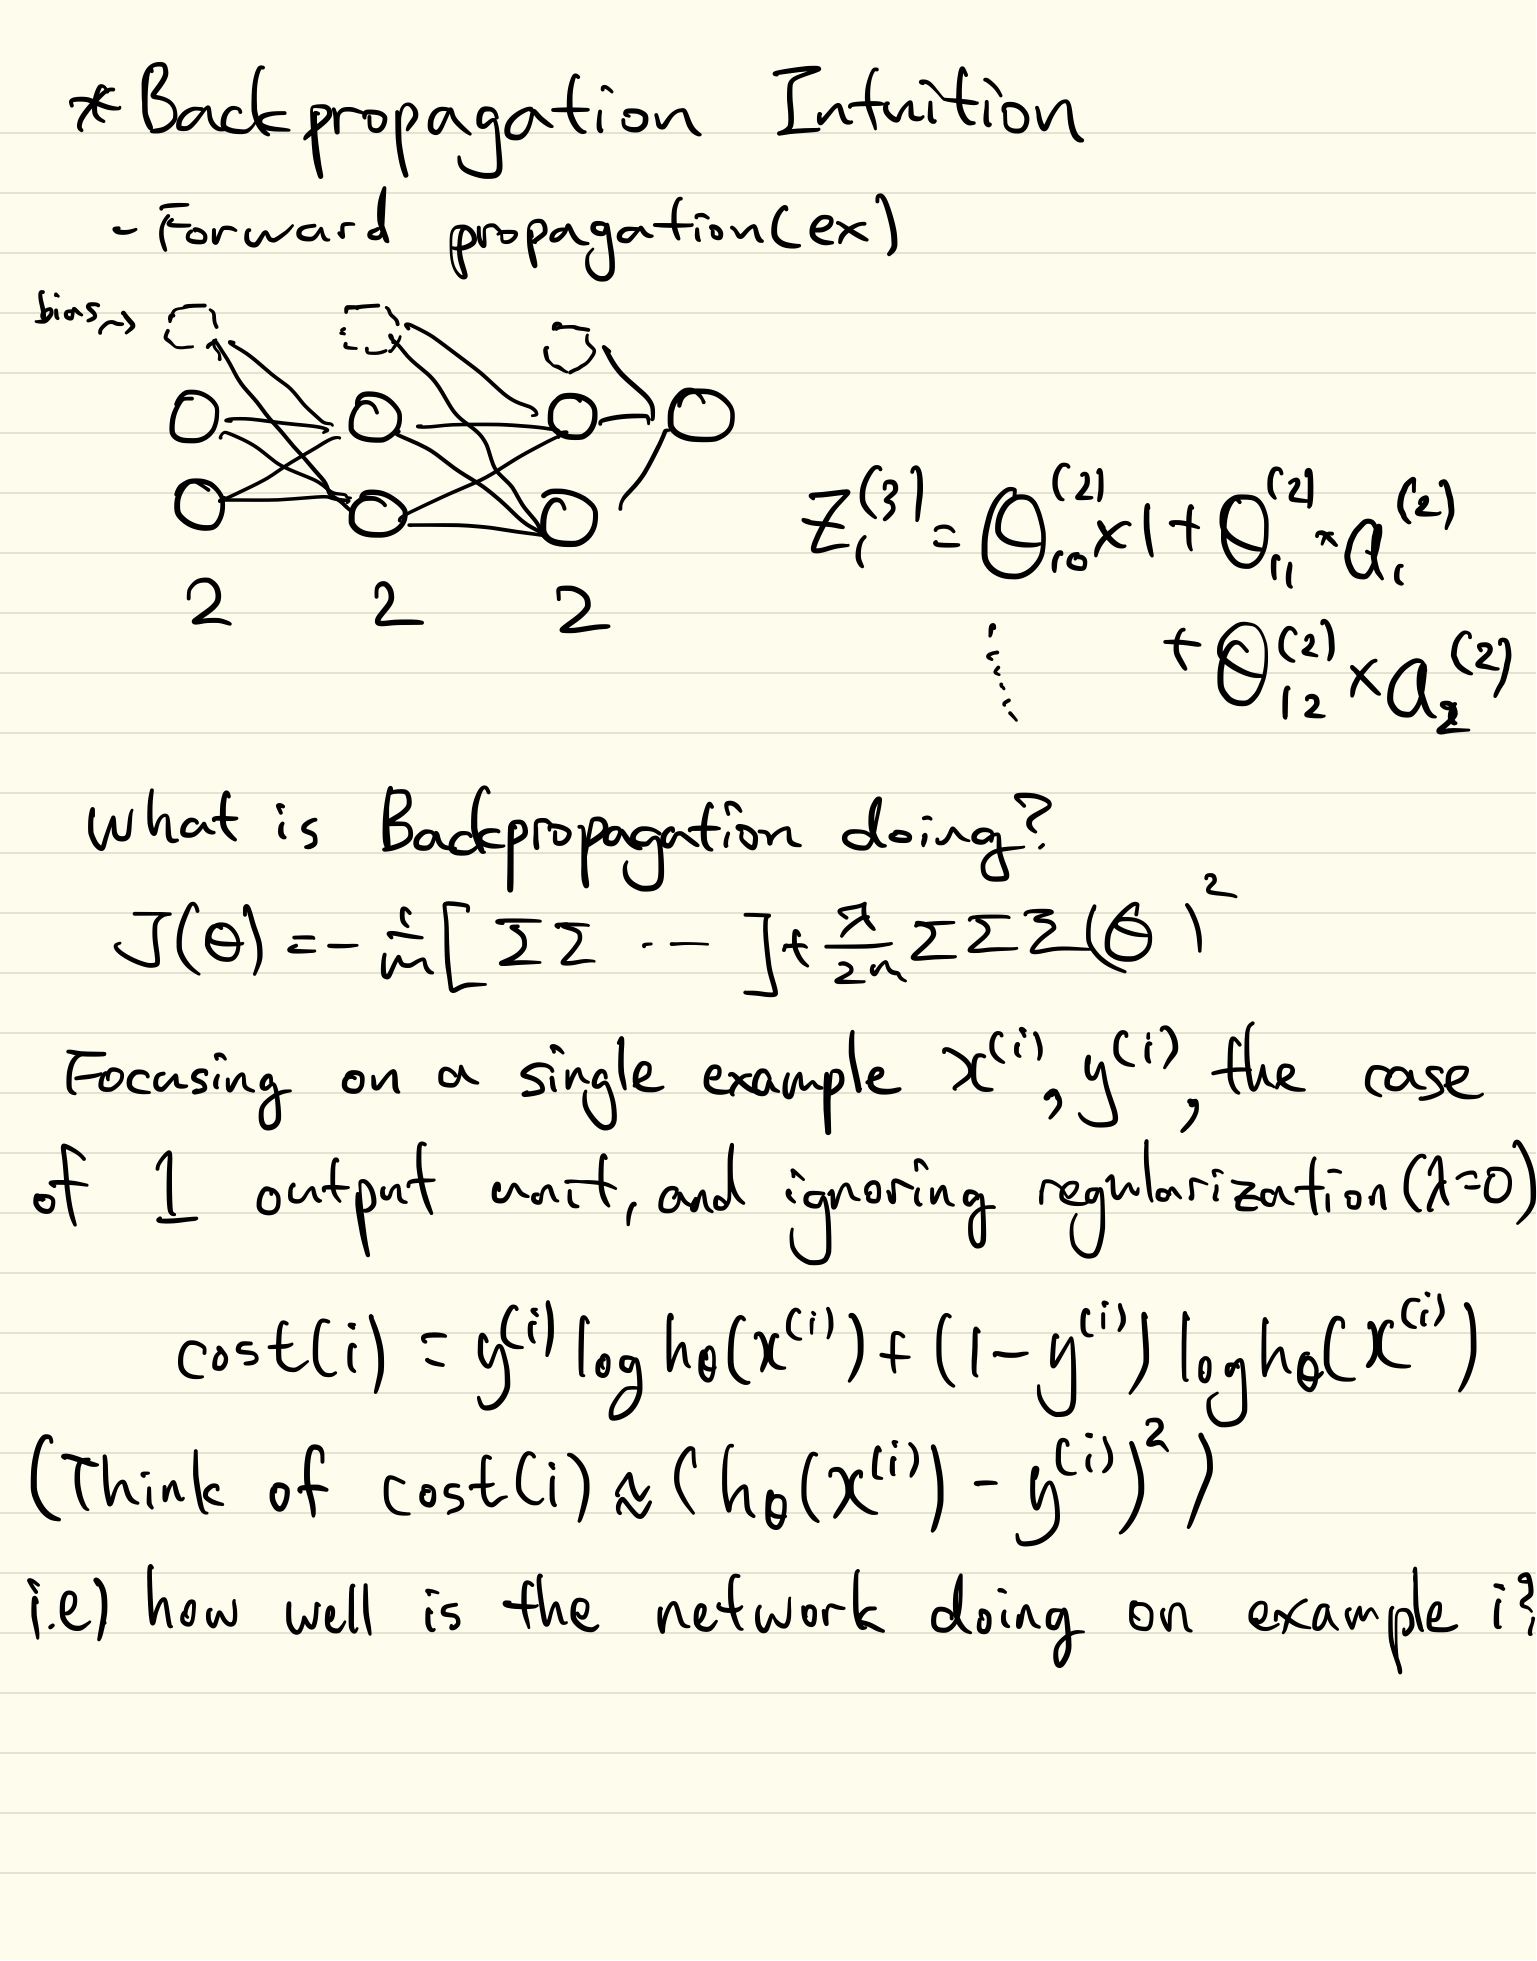 * Backpropagation Intuition
- Forward propagation(ex)
bias→
2 2 2
Z₁⁽³⁾ = Θ₁₀⁽²⁾ × 1 + Θ₁₁⁽²⁾ × a₁⁽²⁾
+ Θ₁₂⁽²⁾ × a₂⁽²⁾
What is Backpropagation doing?
J(Θ) = - 1/m [ ΣΣ ... ] + λ/2m ΣΣΣ(Θ )²
Focusing on a single example x⁽ⁱ⁾, y⁽ⁱ⁾, the case
of 1 output unit, and ignoring regularization(λ=0)
cost(i) = y⁽ⁱ⁾ log hθ(x⁽ⁱ⁾) + (1 - y⁽ⁱ⁾) log hθ(x⁽ⁱ⁾)
(Think of cost(i) ≈ (hθ(x⁽ⁱ⁾) - y⁽ⁱ⁾)²)
i.e) how well is the network doing on example i?